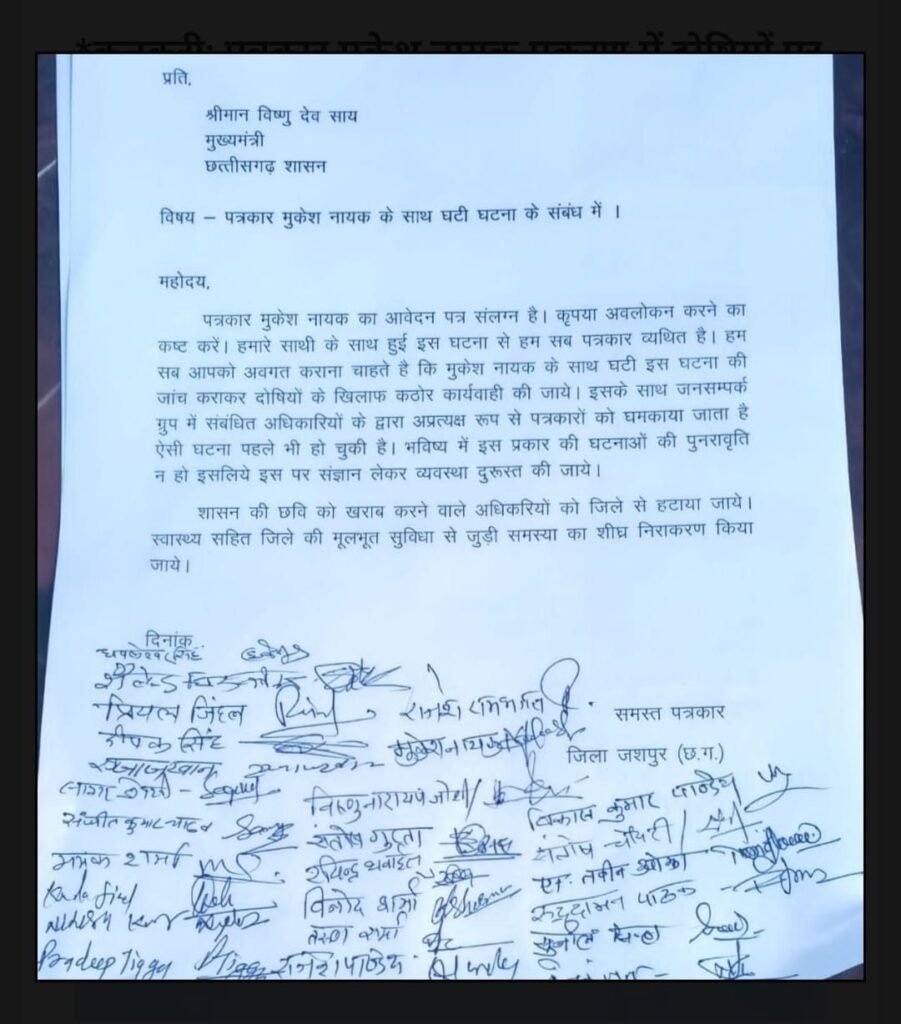 प्रति,
श्रीमान विष्णु देव साय
मुख्यमंत्री
छत्तीसगढ़ शासन
विषय – पत्रकार मुकेश नायक के साथ घटी घटना के संबंध में ।
महोदय,
पत्रकार मुकेश नायक का आवेदन पत्र संलग्न है। कृपया अवलोकन करने का
कष्ट करें। हमारे साथी के साथ हुई इस घटना से हम सब पत्रकार व्यथित है। हम
सब आपको अवगत कराना चाहते है कि मुकेश नायक के साथ घटी इस घटना की
जांच कराकर दोषियों के खिलाफ कठोर कार्यवाही की जाये। इसके साथ जनसम्पर्क
ग्रुप में संबंधित अधिकारियों के द्वारा अप्रत्यक्ष रूप से पत्रकारों को घमकाया जाता है
ऐसी घटना पहले भी हो चुकी है। भविष्य में इस प्रकार की घटनाओं की पुनरावृति
न हो इसलिये इस पर संज्ञान लेकर व्यवस्था दुरूस्त की जाये।
शासन की छवि को खराब करने वाले अधिकरियों को जिले से हटाया जाये।
स्वास्थ्य सहित जिले की मूलभूत सुविधा से जुड़ी समस्या का शीघ्र निराकरण किया
जाये।
दिनांक
प्रियल जिंदल
राजेश
समस्त पत्रकार
दीपक सिंह
मुकेश नायक
जिला जशपुर (छ.ग.)
विष्णु नारायण जोशी
विकास कुमार पाण्डेय
संजीत कुमार यादव
संतोष गुप्ता
संतोष चौधरी
शर्मा
विनोद शर्मा
पाठक
Pradeep Tigga
राजेश पाण्डेय